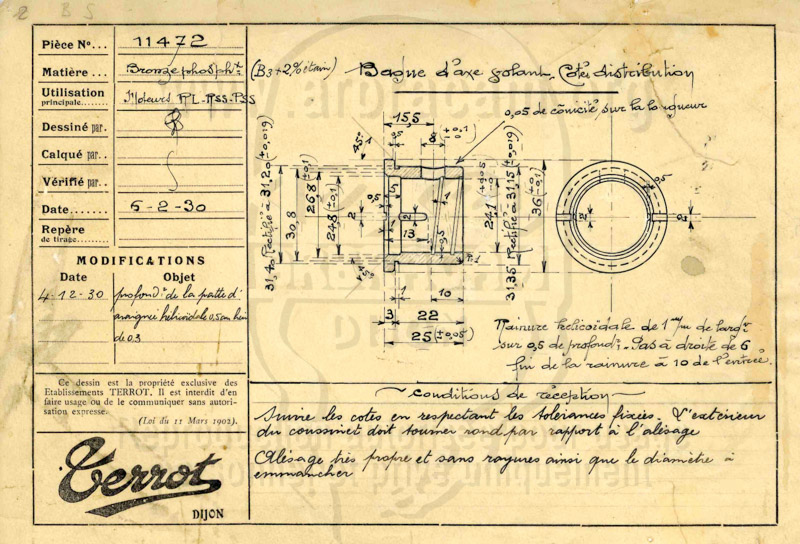 Pièce N°... 11472
Matière ... Bronze phosph^x (B3 + 2% étain)
Utilisation principale....... Moteurs RL-RSS-PSS
Dessiné par.
Calqué par..
Vérifié par..
Date....... 6-2-30
Repère de tirage........
MODIFICATIONS
Date Objet
4-12-30 profond^r de la patte d'
araignée hélicoïdale 0,5 au lieu
de 0.3
Ce dessin est la propriété exclusive des
Etablissements TERROT. Il est interdit d'en
faire usage ou de le communiquer sans autori-
sation expresse.
(Loi du 11 Mars 1902).
Terrot
DIJON
Bague d'axe volant Côté distribution
0,05 de cônicité sur la longueur
15,5
0,5
8 (+ 0,1)
45°
31,4 Rectifié à 31,20 (± 0,019)
30,8
26,8 (± 0,1)
24,8 (± 0,1)
2
0,5
5
2
13
4
0,5
1
24,1 (+ 0,05
31,35 Rectifié à 31,15 (± 0,019)
36 (± 0,1)
45°
1
10
3
22
25 (± 0,05)
0,5
2
3
Rainure hélicoïdale de 1 m/m de larg^r
sur 0,5 de profond^r. Pas à droite de 6
fin de la rainure à 10 de l'entrée
Conditions de réception
Suivre les cotes en respectant les tolérances fixées. L'extérieur
du coussinet doit tourner rond par rapport à l'alésage
Alésage très propre et sans rayures ainsi que le diamètre à
emmancher